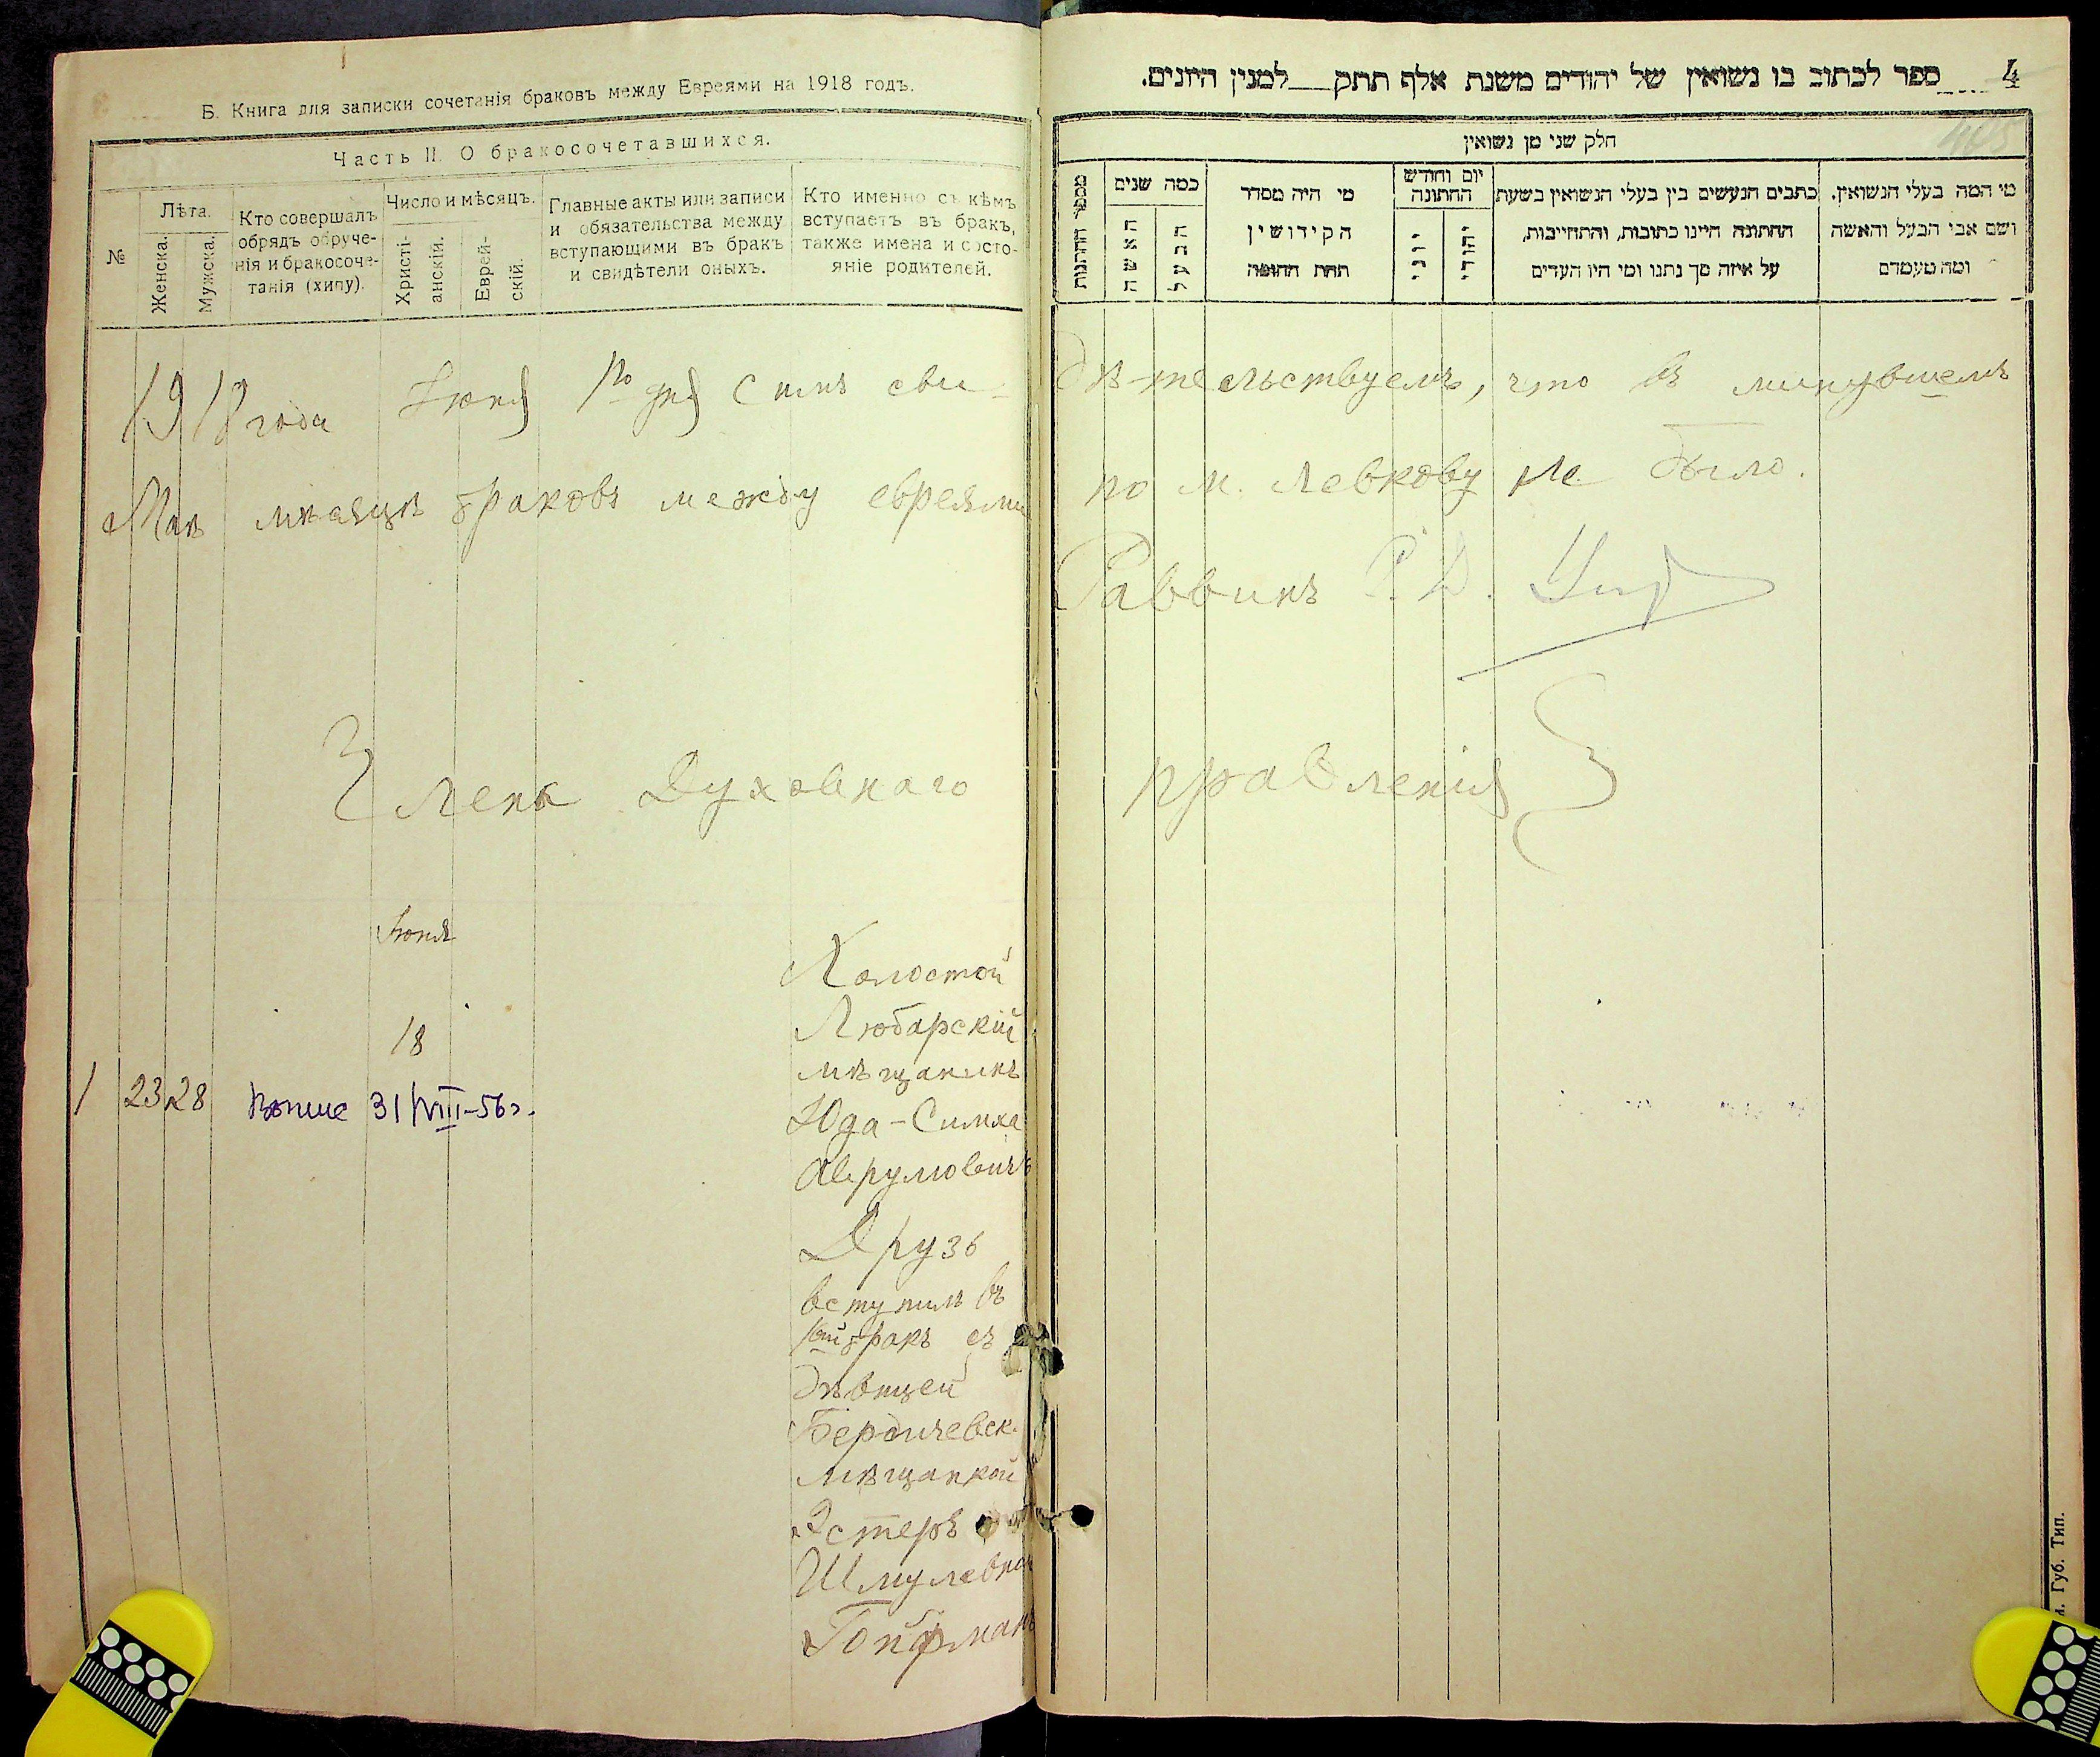 Б. Книга для записки сочетанія браковъ между Евреями на 1918 годъ.
Часть II. О бракосочетавшихся.
№
Лѣта.
Женска.
Мужска.
Кто совершалъ
обрядъ обруче-
нія и бракосоче-
танія (хипу).
Число и мѣсяцъ.
Христі-
анскій.
Еврей-
скій.
Главные акты или записи
и обязательства между
вступающими въ бракъ
и свидѣтели оныхъ.
Кто именно съ кѣмъ
вступаетъ въ бракъ,
также имена и состо-
яніе родителей.
4
ספר לכתוב בו נשואין של יהודים משנת אלף תתק למנין היונים.
חלק שני מן נשואין
מספר החתנות
כמה שנים
האשה
הבעל
מי היה מסדר
הקידושין
תחת החופה
יום וחודש
החתונה
יוני
יהודי
כתבים הנעשים בין בעלי הנשואין בשעת
החתונה היינו כתובות, והתחייבות,
על איזה סך נתנו ומי היו העדים
מי המה בעלי הנשואין.
ושם אבי הבעל והאשה
ומה מעמדם
1918 года Іюня 1го дня симъ сви-
дѣ-тельствуемъ, что въ минувшемъ
Маѣ мѣсяцѣ браковъ между евреями
по м. Левкову не было.
Раввинъ
Члены Духовнаго правленія
Іюня
18
1 23 28
31/VIII-56г.
Холостой
Любарскій
мѣщанинъ
Юда-Симха
Аврумовичъ
Друзь
вступилъ въ
1ый бракъ съ
дѣвицей
Бердичевск.
мѣщанкой
Эстеръ
Шмулевной
Гойфманъ
Губ. Тип.